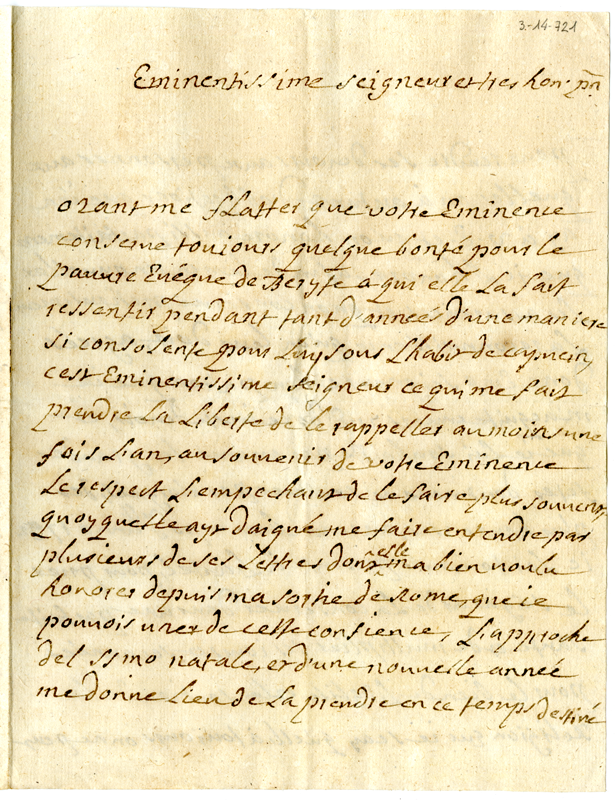 3-14-721
Eminentissime seigneur et tres hon. pñ
ozant me flatter que votre Eminence
conserve toujours quelque bonté pour le
pauvre Evéque de Beryte á qui elle la fait
ressentir pendant tant d'anneés d'une maniere
si consolente pour Luy sous L'habit de capucin,
cest Eminentissime seigneur ce qui me fait
prendre La Liberte de le rappeller au moins une
fois L'an, au souvenir de votre Eminence
Le respect L'empechant de le faire plus souvent,
quoy quelle ayt daigné me faire entendre par
plusieurs de ses Lettres dont elle m'a bien voulu
honorer depuis ma sortie de Rome, que ie
pouvois user de cette confience, L'approche
del ssmo natale, et d'une nouvelle anneé
me donne Lieu de La prendre en ce temps destiné